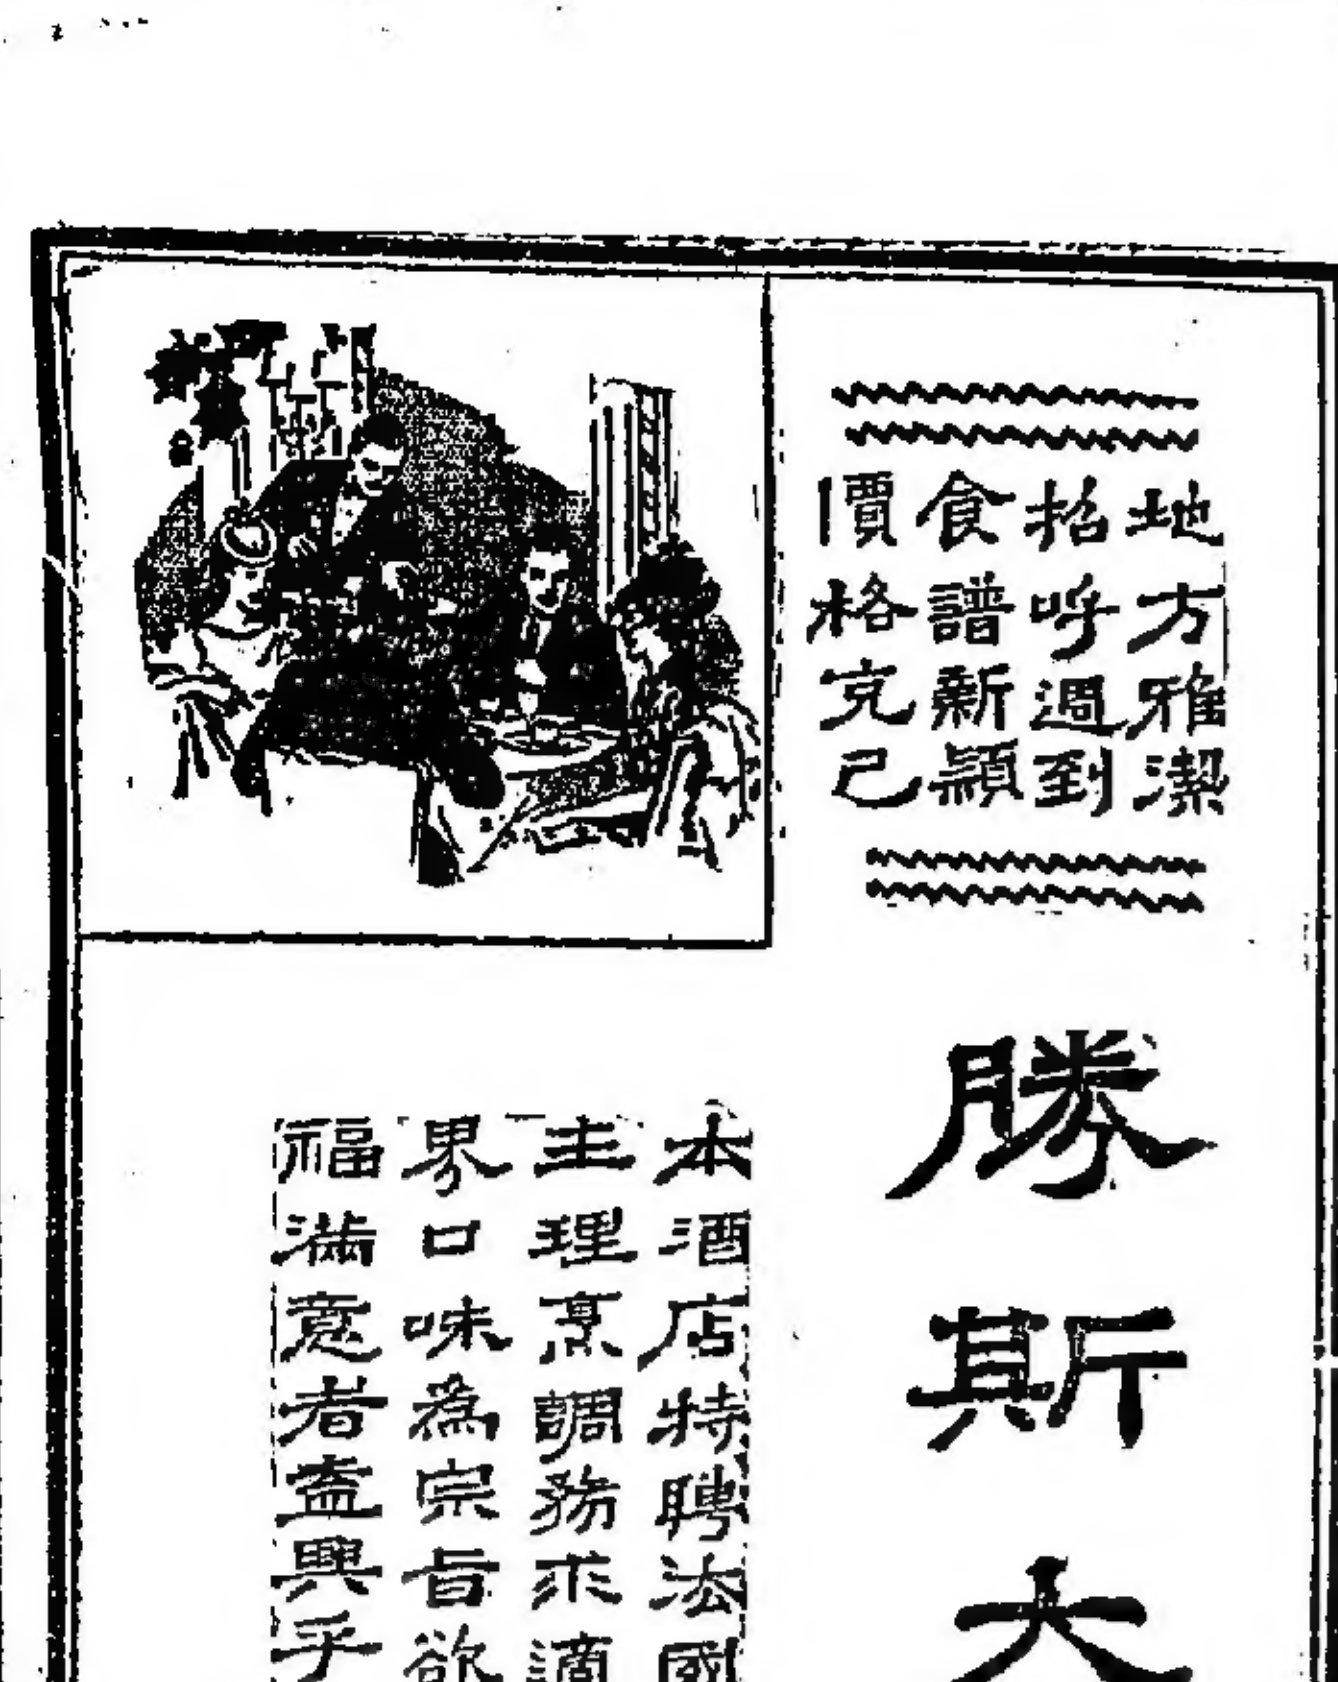 地方雅潔
招呼週到
食譜新穎
價格克己
勝斯大
本酒店特聘法國
主理烹調務求適
界口味為宗旨欲
福滿意者盍興乎